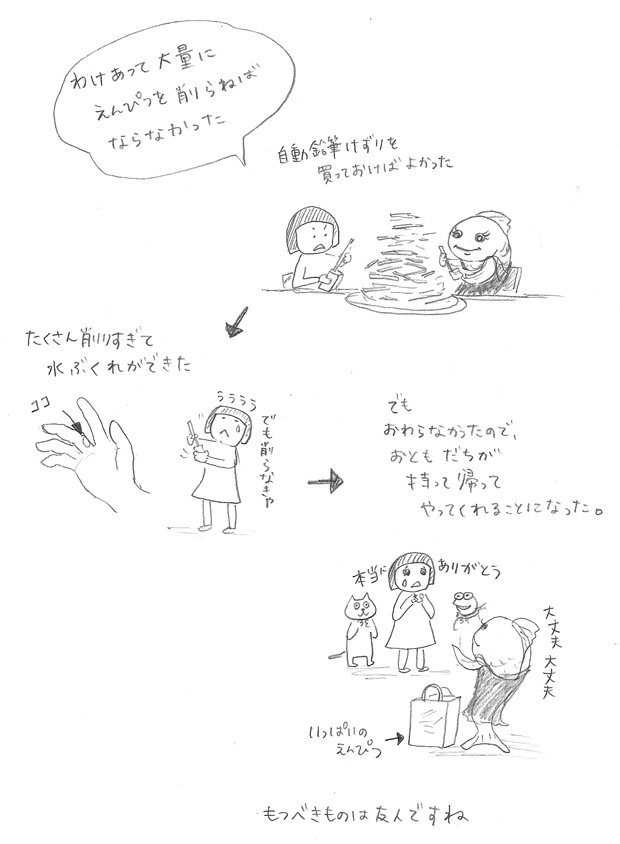 わけあって大量に
えんぴつを削らねば
ならなかった
自動鉛筆けずりを
買っておけばよかった
たくさん削りすぎて
水ぶくれができた
ココ
うううう
でも削らなきゃ
でも
おわらなかったので、
おともだちが
持って帰って
やってくれることになった。
本当に
ありがとう
大丈夫
大丈夫
いっぱいの
えんぴつ
もつべきものは友人ですね